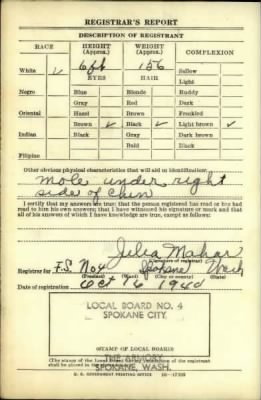 REGISTRAR'S REPORT
DESCRIPTION OF REGISTRANT
RACE HEIGHT (Approx.) WEIGHT (Approx.) COMPLEXION
6 ft 156
White ✓ EYES HAIR Sallow
Light
Negro Blue Blonde Ruddy
Gray Red Dark
Oriental Hazel Brown Freckled
Brown ✓ Black ✓ Light brown ✓
Indian Black Gray Dark brown
Bald Black
Filipino
Other obvious physical characteristics that will aid in identification
mole under right
side of chin
I certify that my answers are true; that the person registered has read or has had
read to him his own answers; that I have witnessed his signature or mark and that
all of his answers of which I have knowledge are true, except as follows:
Julia Mahar
(Signature of registrar)
Registrar for Spokane Wash
(Precinct) (Ward) (City or county) (State)
Date of registration Oct 16 1940
LOCAL BOARD NO. 4
SPOKANE CITY,
(STAMP OF LOCAL BOARD)
THE ARMORY
SPOKANE, WASH.
(The stamp of the Local Board having jurisdiction of the registrant
shall be placed in the above space.)
U. S. GOVERNMENT PRINTING OFFICE 16—17105